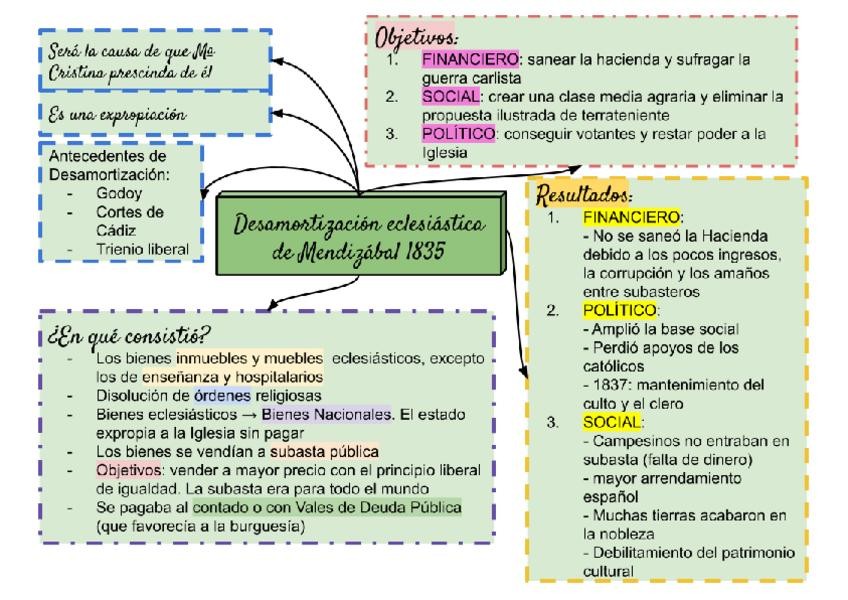 Será la causa de que Mª
Cristina prescinda de él
Es una expropiación
Antecedentes de
Desamortización:
- Godoy
- Cortes de
Cádiz
- Trienio liberal
Objetivos:
1. FINANCIERO: sanear la hacienda y sufragar la
guerra carlista
2. SOCIAL: crear una clase media agraria y eliminar la
propuesta ilustrada de terrateniente
3. POLÍTICO: conseguir votantes y restar poder a la
Iglesia
Desamortización eclesiástica
de Mendizábal 1835
Resultados:
1. FINANCIERO:
- No se saneó la Hacienda
debido a los pocos ingresos,
la corrupción y los amaños
entre subasteros
2. POLÍTICO:
- Amplió la base social
- Perdió apoyos de los
católicos
- 1837: mantenimiento del
culto y el clero
3. SOCIAL:
- Campesinos no entraban en
subasta (falta de dinero)
- mayor arrendamiento
español
- Muchas tierras acabaron en
la nobleza
- Debilitamiento del patrimonio
cultural
¿En qué consistió?
- Los bienes inmuebles y muebles eclesiásticos, excepto
los de enseñanza y hospitalarios
- Disolución de órdenes religiosas
- Bienes eclesiásticos → Bienes Nacionales. El estado
expropia a la Iglesia sin pagar
- Los bienes se vendían a subasta pública
- Objetivos: vender a mayor precio con el principio liberal
de igualdad. La subasta era para todo el mundo
- Se pagaba al contado o con Vales de Deuda Pública
(que favorecía a la burguesía)